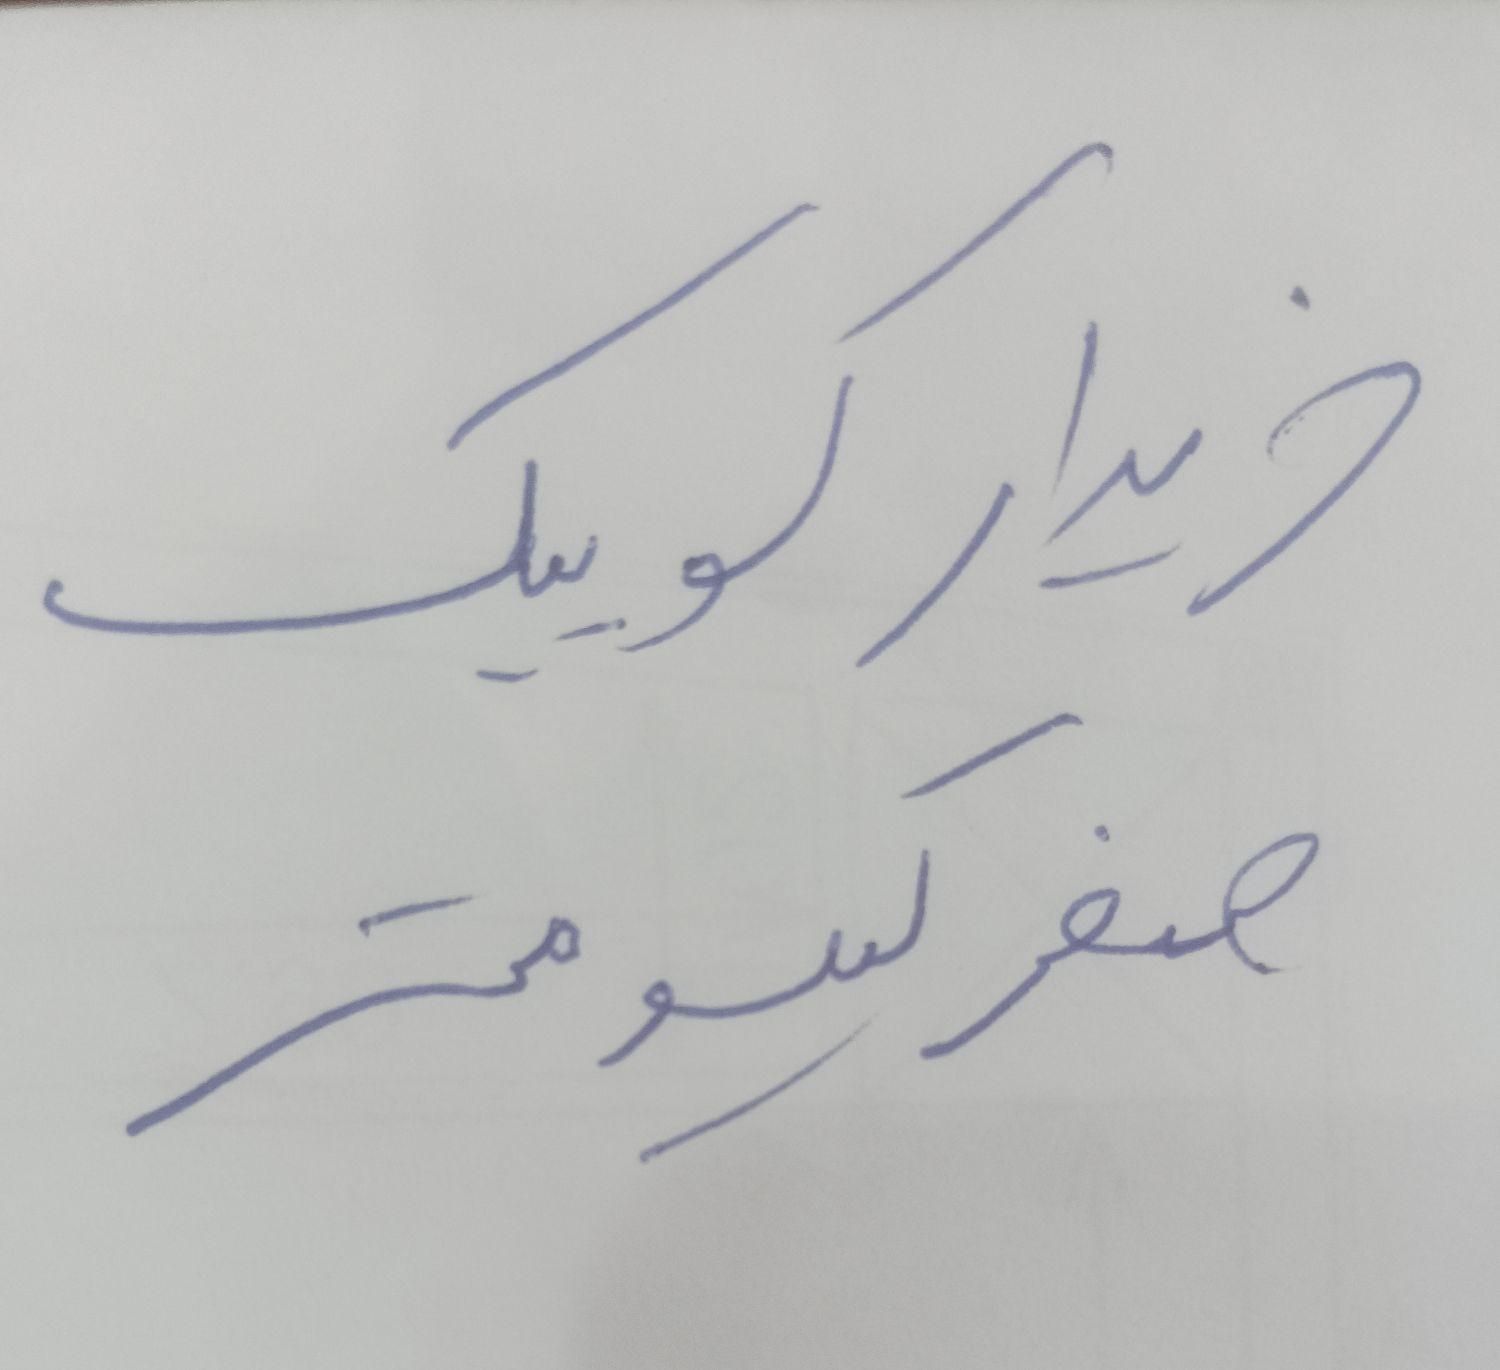 خریدار کوییک
صفر کیلومتر